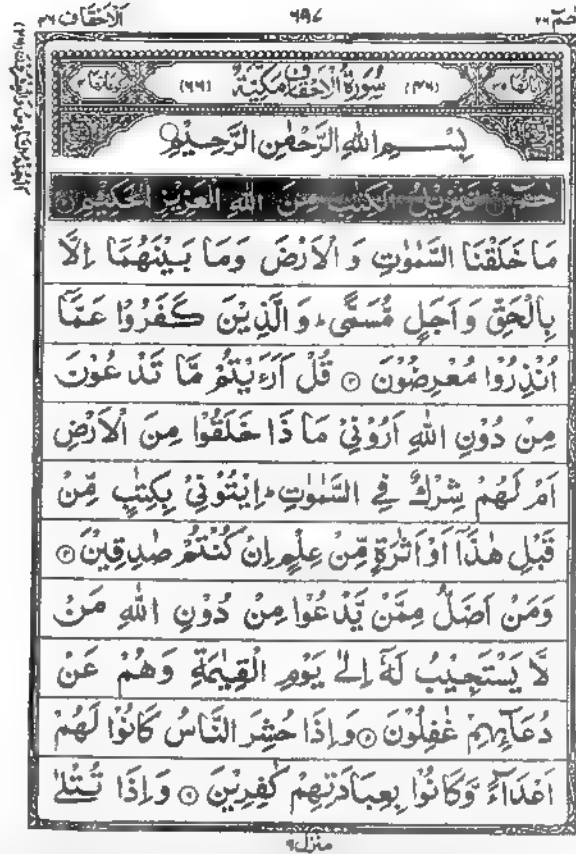 حٰمٓ ٢٦ ٦٩٨ اَلْاَحْقَاف ٤٦
اٰيَاتُهَا ٣٥ (٤٦) سُوْرَةُ الْاَحْقَافِ مَكِّيَّةٌ (٦٦) رُكُوْعَاتُهَا ٤
بِسْــــمِ اللهِ الرَّحْمٰنِ الرَّحِيْمِ
حٰمٓ ۝ تَنْزِيْلُ الْكِتٰبِ مِنَ اللهِ الْعَزِيْزِ الْحَكِيْمِ ۝
مَا خَلَقْنَا السَّمٰوٰتِ وَ الْاَرْضَ وَمَا بَيْنَهُمَا اِلَّا
بِالْحَقِّ وَاَجَلٍ مُّسَمًّى ؕ وَ الَّذِيْنَ كَفَرُوْا عَمَّا
اُنْذِرُوْا مُعْرِضُوْنَ ۝٣ قُلْ اَرَءَيْتُمْ مَّا تَدْعُوْنَ
مِنْ دُوْنِ اللهِ اَرُوْنِيْ مَا ذَا خَلَقُوْا مِنَ الْاَرْضِ
اَمْ لَهُمْ شِرْكٌ فِي السَّمٰوٰتِ ؕ اِيْتُوْنِيْ بِكِتٰبٍ مِّنْ
قَبْلِ هٰذَآ اَوْ اَثٰرَةٍ مِّنْ عِلْمٍ اِنْ كُنْتُمْ صٰدِقِيْنَ ۝٤
وَمَنْ اَضَلُّ مِمَّنْ يَّدْعُوْا مِنْ دُوْنِ اللهِ مَنْ
لَّا يَسْتَجِيْبُ لَهٗٓ اِلٰى يَوْمِ الْقِيٰمَةِ وَهُمْ عَنْ
دُعَآئِهِمْ غٰفِلُوْنَ ۝٥ وَاِذَا حُشِرَ النَّاسُ كَانُوْا لَهُمْ
اَعْدَآءً وَّكَانُوْا بِعِبَادَتِهِمْ كٰفِرِيْنَ ۝٦ وَاِذَا تُتْلٰى
منزل ٦